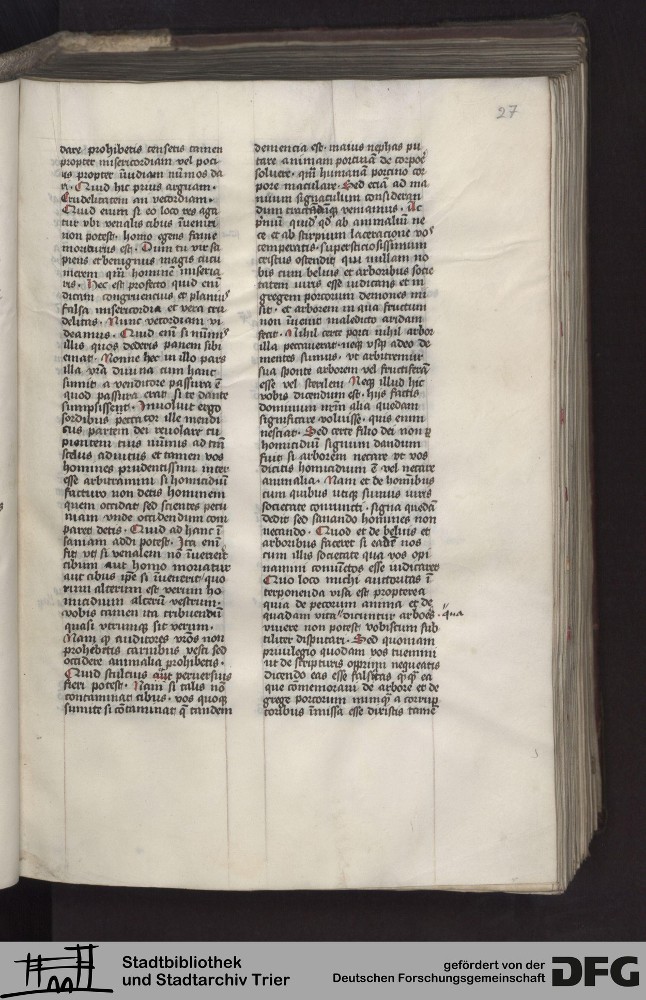 27
dare prohibetis censetis tamen
propter misericordiam vel poci
us propter iudiam nūmos da
ri. Quid hic prius arguam.
Crudelitatem an vecordiam.
Quid enim si eo loco res aga
tur vbi venalis cibus īueniri
non potest. homo egens fame
moriturus est. Dum tu vir sa
piens et benignus magis cucu
merem qm̄ hominē miseria
ris. Hec est profecto quid enī
dicam congruencius et planiꝰ
falsa misericordia et vera cru
delitas. Nunc vecordiam vi
deamus. Quid enī si nūmis
illis quos dederis panem sibi
emat. Nonne hec in illo pars
illa vr̄a diuina cum hanc
sumit a venditore passura ē
quod passura erat si te dante
sumpsissent. Inuoluit ergo
sordibus peccator ille mendi
cus partem dei reuolare cu
pientem eius nūmus ad tm̄
scelus adiutus et tamen vos
homines prudentissimi inter
esse arbitramini si homicidiū
facturo non detis hominem
quem occidat sed scientes pecu
niam vnde occidendum com
paret detis. Quid ad hanc ī
saniam addi potest. Ita enī
fit vt si venalem nō īueneīt
cibum aut homo moriatur
aut cibus ipē si īuenerit quo
rum alterum est verum ho
micidium alterū vestrum.
vobis tamen ita tribuendū
quasi vtrumqꝫ sit verum.
Nam qꝫ auditores vr̄os non
prohebetis carnibus vesci sed
occidere animalia prohibetis.
Quid stulcius aut peruersius
fieri potest. Nam si talis nō
contaminat cibus. vos quoqꝫ
sumite si cōtaminat ꝗ tandem
demencia est. maius nephas pu
tare animam porcinā de corpoē
soluere. qm̄ humanā porcino cor
pore maculare. Sed eciā ad ma
nuum signaculum consideran
dum tractādūqꝫ veniamus. Ac
pͥmū quid qd ab animaliū ne
ce et ab stirpium laceracione voꝰ
temperatis. supersticiosissimum
cristus ostendit qui nullam no
bis cum beluis et arboribus socie
tatem iuris esse iudicans et in
gregem porcorum demones mi
sit. et arborem in qua fructum
non īuenit maledicto aridam
fecit. Nihil certe porci nihil arbor
illa peccauerat. neqꝫ vsqꝫ adeo de
mentes sumus. vt arbitremur
sua sponte arborem vel fructiferā
esse vel sterilem Neqꝫ illud hic
vobis dicendum est. hijs factis
dominum nr̄m alia quedam
significare voluisse. quis enim
nesciat. Sed certe filio dei non ꝑ
homicidiū signum dandum
fuit si arborem necare vt vos
dicitis homicidium ē vel necare
animalia. Nam et de homībus
cum quibus utiqꝫ sumus iuris
societate coniuncti. signa quedā
dedit sed sanando homines non
necando. Quod et de beluis et
arboribus faceret si eadē nos
cum illis societate qua vos opi
namini coniūctos esse iudicaret
Quo loco michi auctoritas ī
terponenda visa est propterea
quia de pecorum anima et de
quadam vita dicuntur arbores. qua
viuere non potest vobiscum sub
tiliter disputari. Sed quoniam
priuilegio quodam vos tuemini
ut de scripturis opprimi nequeatis
dicendo eas esse falsatas qͣqͣ ea
que commemoraui de arbore et de
grege porcorum nunqꝫ a corrup
toribus īmissa esse dixistis tamē
Stadtbibliothek
und Stadtarchiv Trier
gefördert von der
Deutschen Forschungsgemeinschaft
DFG